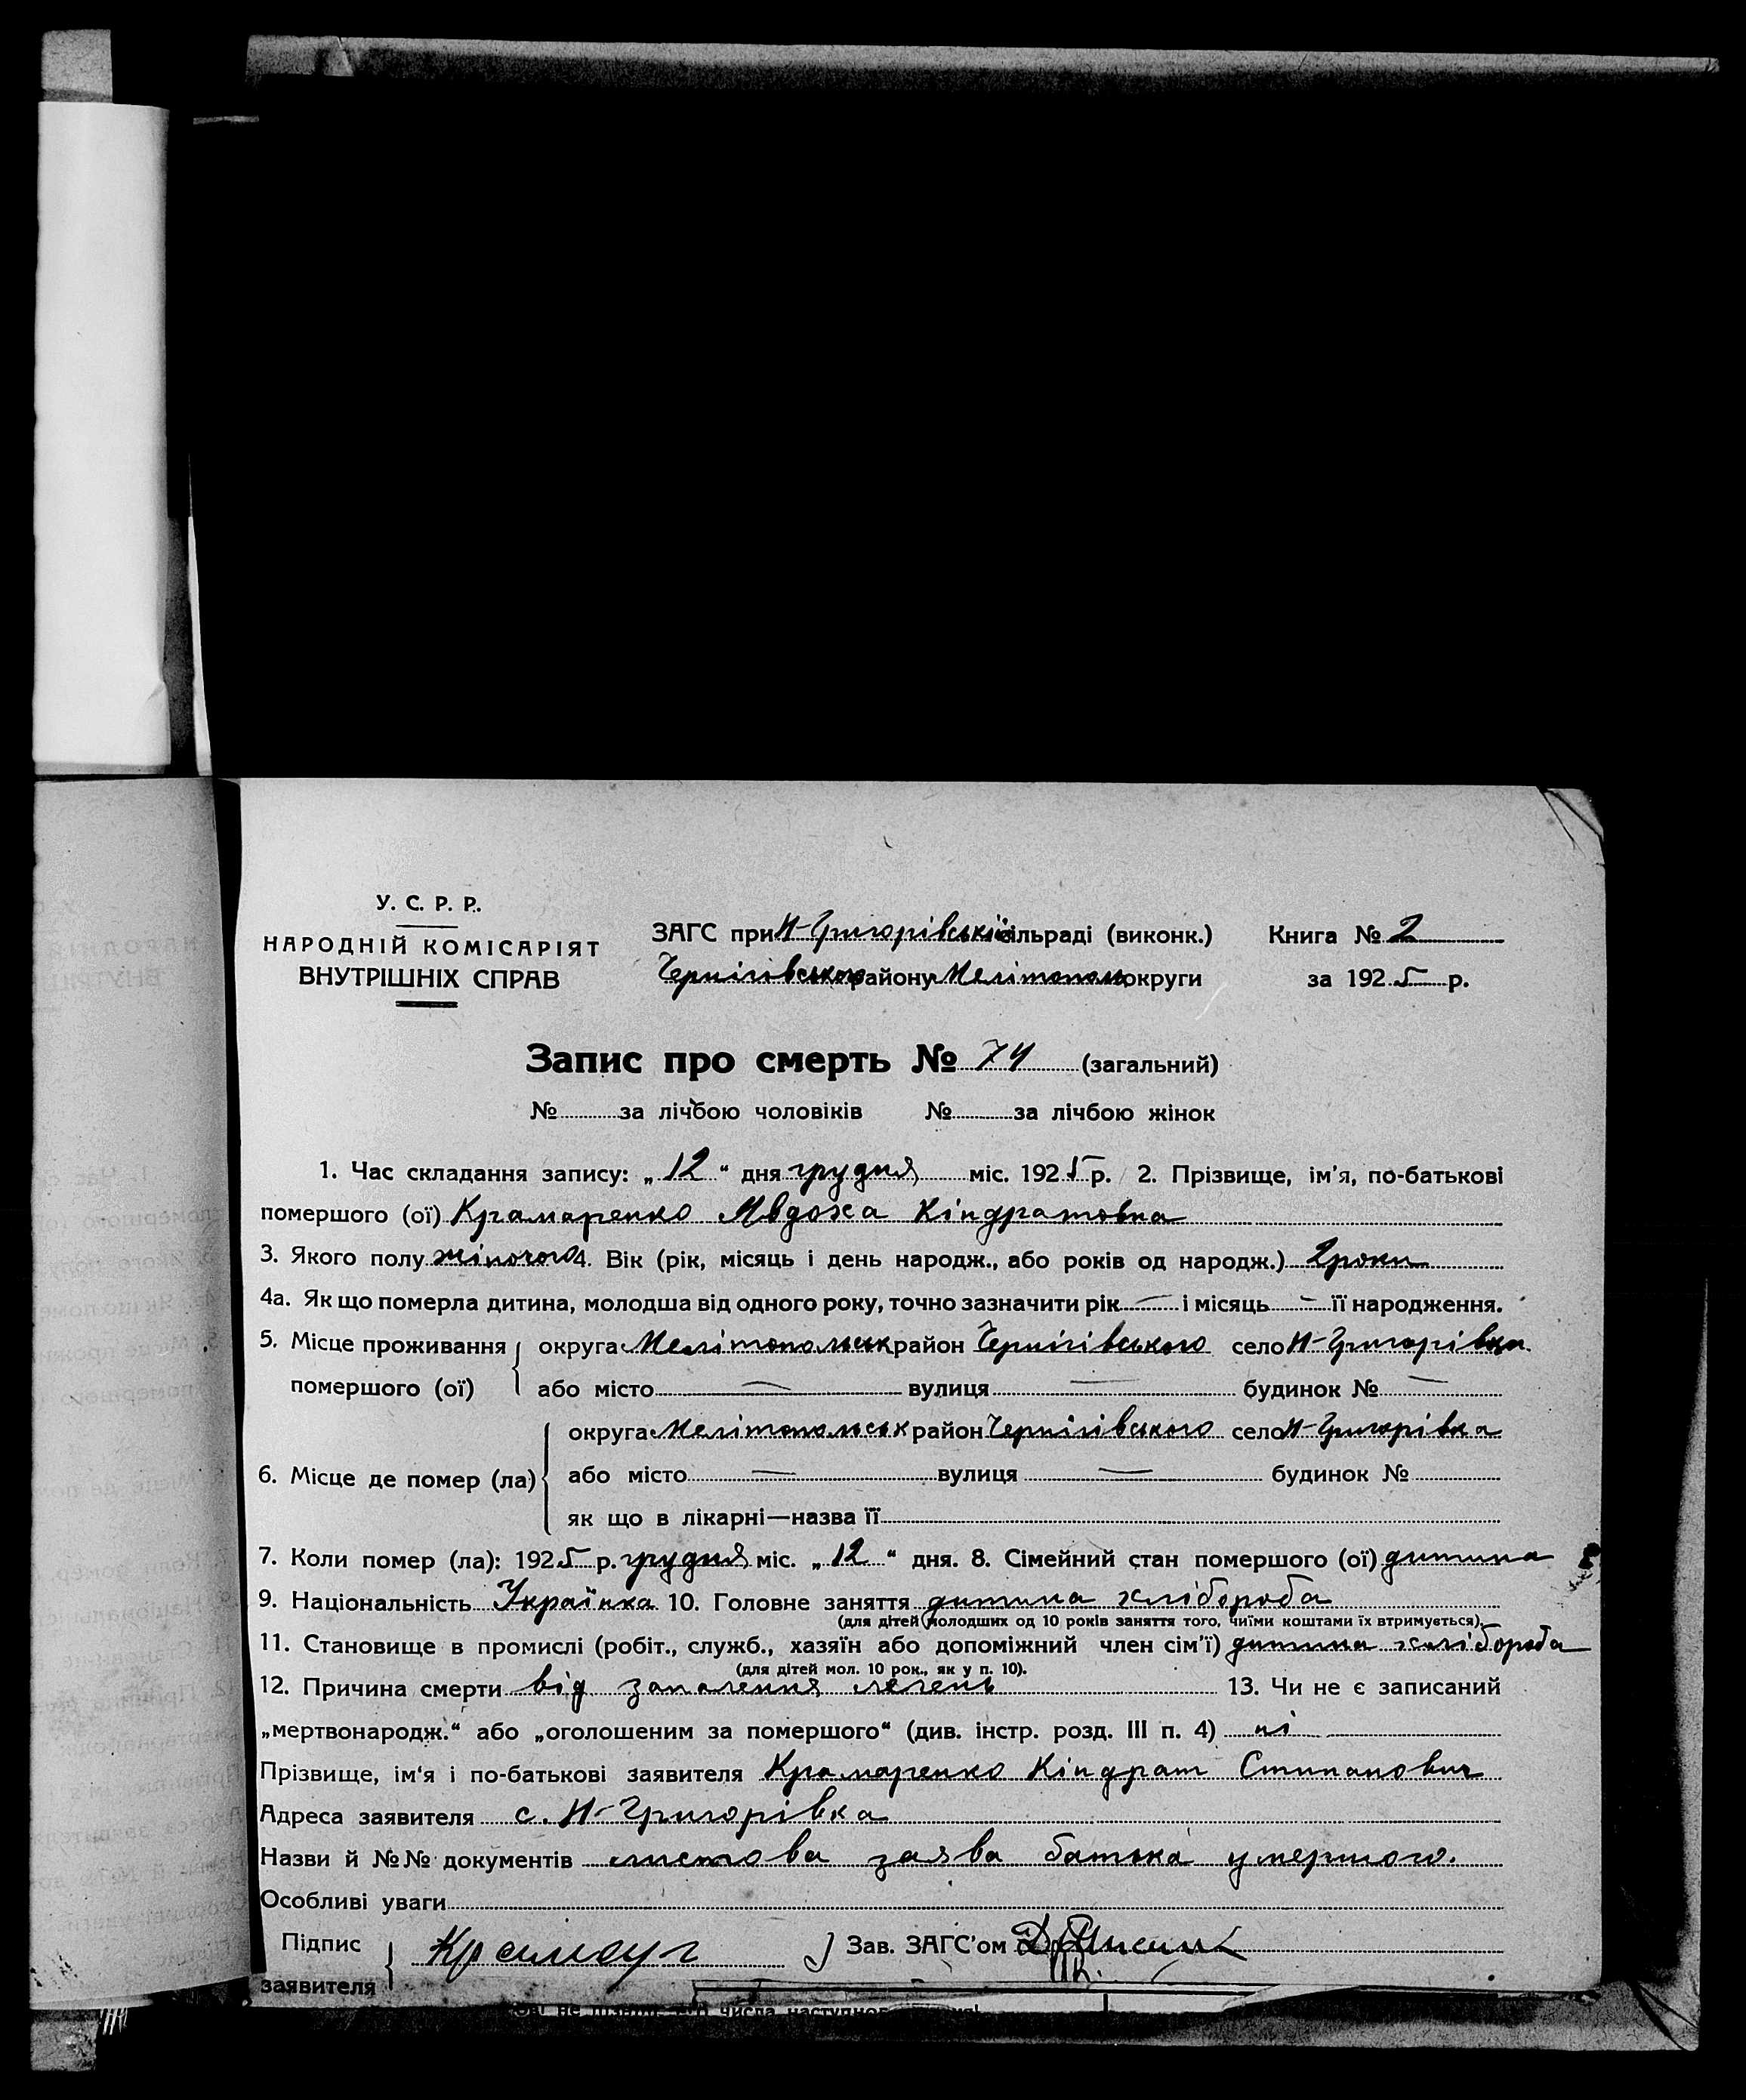 У. С. Р. Р.
НАРОДНІЙ КОМІСАРІЯТ
ВНУТРІШНІХ СПРАВ
ЗАГС при Н-Григорівській сільраді (виконк.)
Чернігівського району Мелітополь округи
Книга № 2
за 1925 р.
Запис про смерть № 74 (загальний)
№ за лічбою чоловіків № за лічбою жінок
1. Час складання запису: „12“ дня грудня міс. 1925 р. 2. Прізвище, ім'я, по-батькові
помершого (ої) Крамаренко Явдоха Кіндратовна
3. Якого полу жіночого 4. Вік (рік, місяць і день народж., або років од народж.) 2 роки
4а. Як що померла дитина, молодша від одного року, точно зазначити рік — і місяць — її народження.
5. Місце проживання помершого (ої) округа Мелітопольськ район Чернігівського село Н-Григорівка
або місто — вулиця — будинок № —
6. Місце де помер (ла) округа Мелітопольськ район Чернігівського село Н-Григорівка
або місто — вулиця — будинок №
як що в лікарні—назва її
7. Коли помер (ла): 1925 р. грудня міс. „12“ дня. 8. Сімейний стан помершого (ої) дитина
9. Національність Українка 10. Головне заняття дитина хлібороба
(для дітей молодших од 10 років заняття того, чиїми коштами їх втримується).
11. Становище в промислі (робіт., служб., хазяїн або допоміжний член сім'ї) дитина хлібороба
(для дітей мол. 10 рок., як у п. 10).
12. Причина смерти від запалення легень 13. Чи не є записаний
„мертвонародж.“ або „оголошеним за помершого“ (див. інстр. розд. III п. 4) ні
Прізвище, ім'я і по-батькові заявителя Крамаренко Кіндрат Стипанович
Адреса заявителя с. Н-Григорівка
Назви й №№ документів листова заява батька умершого.
Особливі уваги
Підпис заявителя Зав. ЗАГС'ом